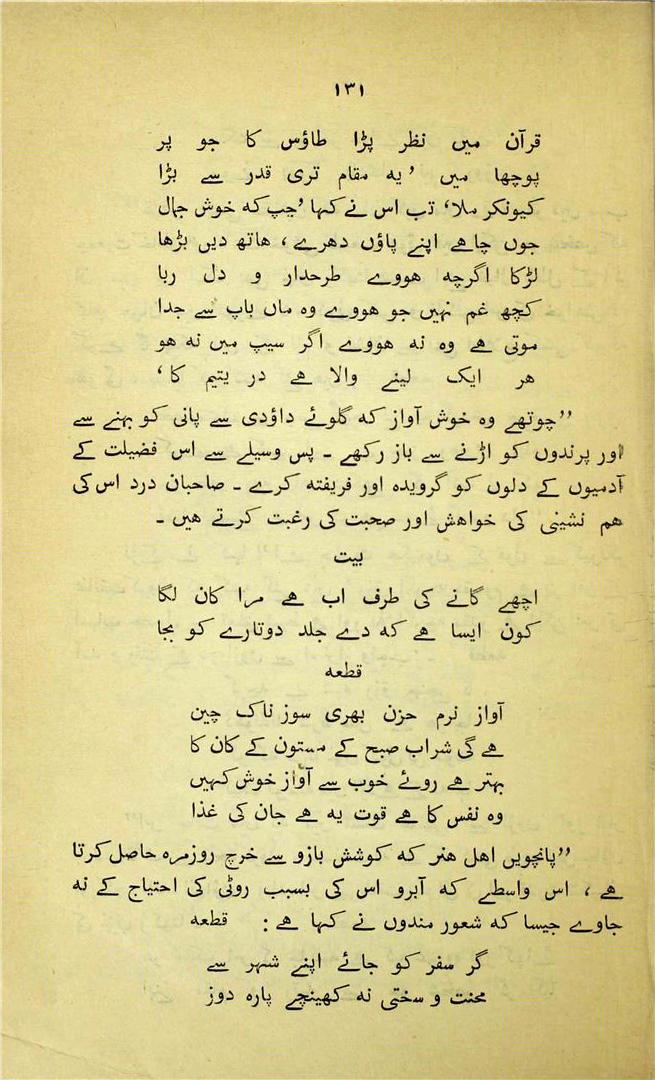 ۱۳۱
قرآن میں نظر پڑا طاؤس کا جو پر
پوچھا میں ’یه مقام تری قدر سے بڑا
کیونکر ملا‘ تب اس نے کہا ’چپ که خوش جمال
جوں چاهے اپنے پاؤں دهرے، هاتھ دیں بڑھا
لڑکا اگرچه هووے طرحدار و دل ربا
کچھ غم نہیں جو هووے وه ماں باپ سے جدا
موتی هے وه نه هووے اگر سیپ میں نه هو
هر ایک لینے والا هے در یتیم کا‘
”چوتھے وه خوش آواز که گلوئے داؤدی سے پانی کو بہنے سے
اور پرندوں کو اڑنے سے باز رکھے ۔ پس وسیلے سے اس فضیلت کے
آدمیوں کے دلوں کو گرویده اور فریفته کرے ۔ صاحبان درد اس کی
هم نشینی کی خواهش اور صحبت کی رغبت کرتے هیں ۔
بیت
اچھے گانے کی طرف اب هے مرا کان لگا
کون ایسا هے که دے جلد دوتارے کو بجا
قطعه
آواز نرم حزن بھری سوز ناک چین
هے گی شراب صبح کے مستوں کے کان کا
بہتر هے روئے خوب سے آواز خوش کہیں
وه نفس کا هے قوت یه هے جان کی غذا
”پانچویں اهل هنر که کوشش بازو سے خرچ روزمره حاصل کرتا
هے، اس واسطے که آبرو اس کی بسبب روٹی کی احتیاج کے نه
جاوے جیسا که شعور مندوں نے کہا هے: قطعه
گر سفر کو جائے اپنے شہر سے
محنت و سختی نه کھینچے پاره دوز